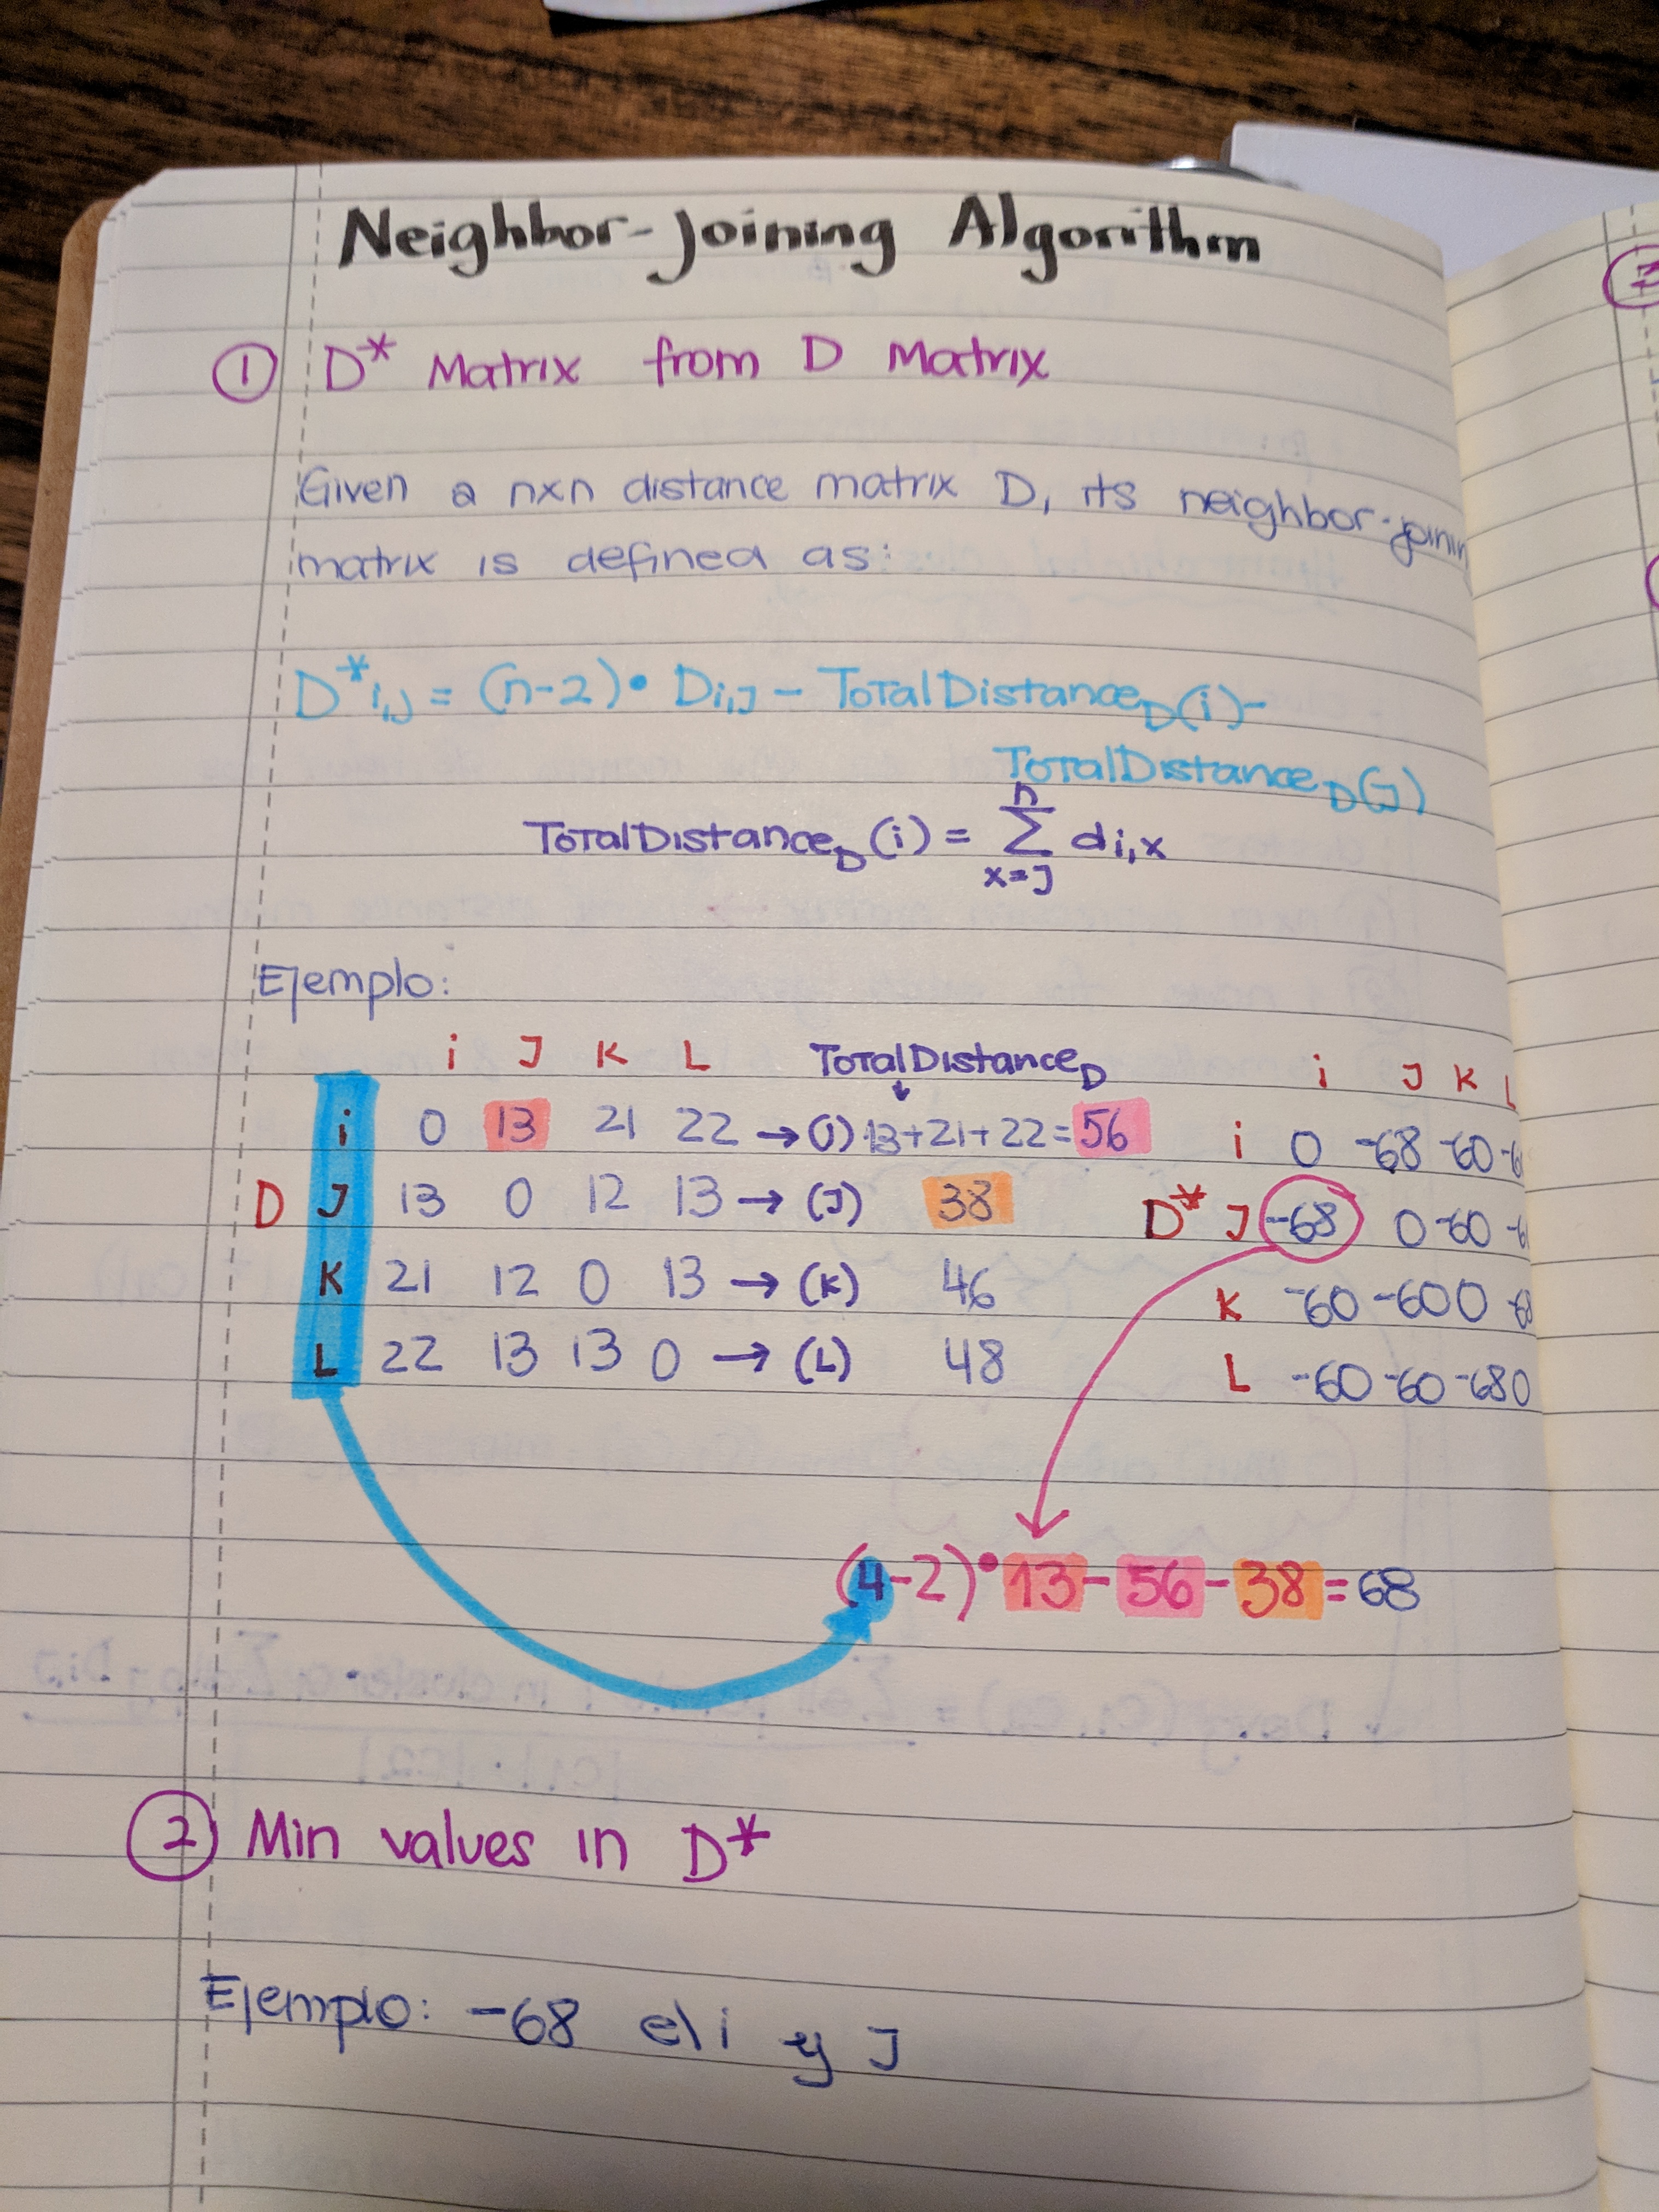 Neighbor-Joining Algorithm
① D* Matrix from D Matrix
Given a nxn distance matrix D, its neighbor-joinin
matrix is defined as:
D*i,J = (n-2)• Di,J - TotalDistanceD(i)-
TotalDistanceD(J)
TotalDistanceD(i) = n∑x=J di,x
Ejemplo:
i J K L TotalDistanceD i J K L
i 0 13 21 22 → (i) 13+21+22=56 i 0 -68 -60
D J 13 0 12 13 → (J) 38 D* J -68 0 -60
K 21 12 0 13 → (K) 46 K -60 -60 0
L 22 13 13 0 → (L) 48 L -60 -60 -68 0
(4-2)•13-56-38=68
② Min values in D*
Ejemplo: -68 el i y J